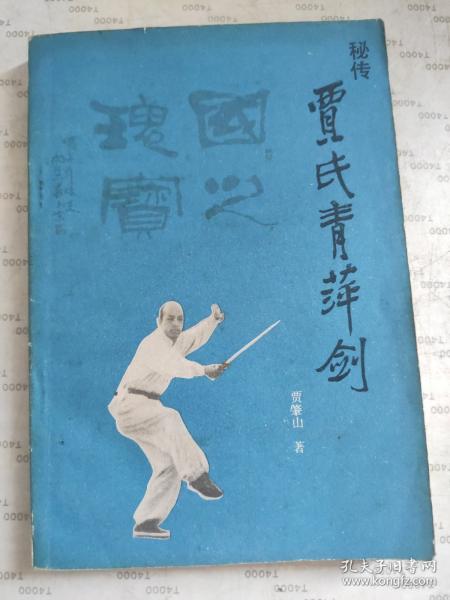 秘传
賈氏青萍剑
贾肇山 著
國之
瑰寶
T4000
孔夫子旧书网
www.kongfz.com